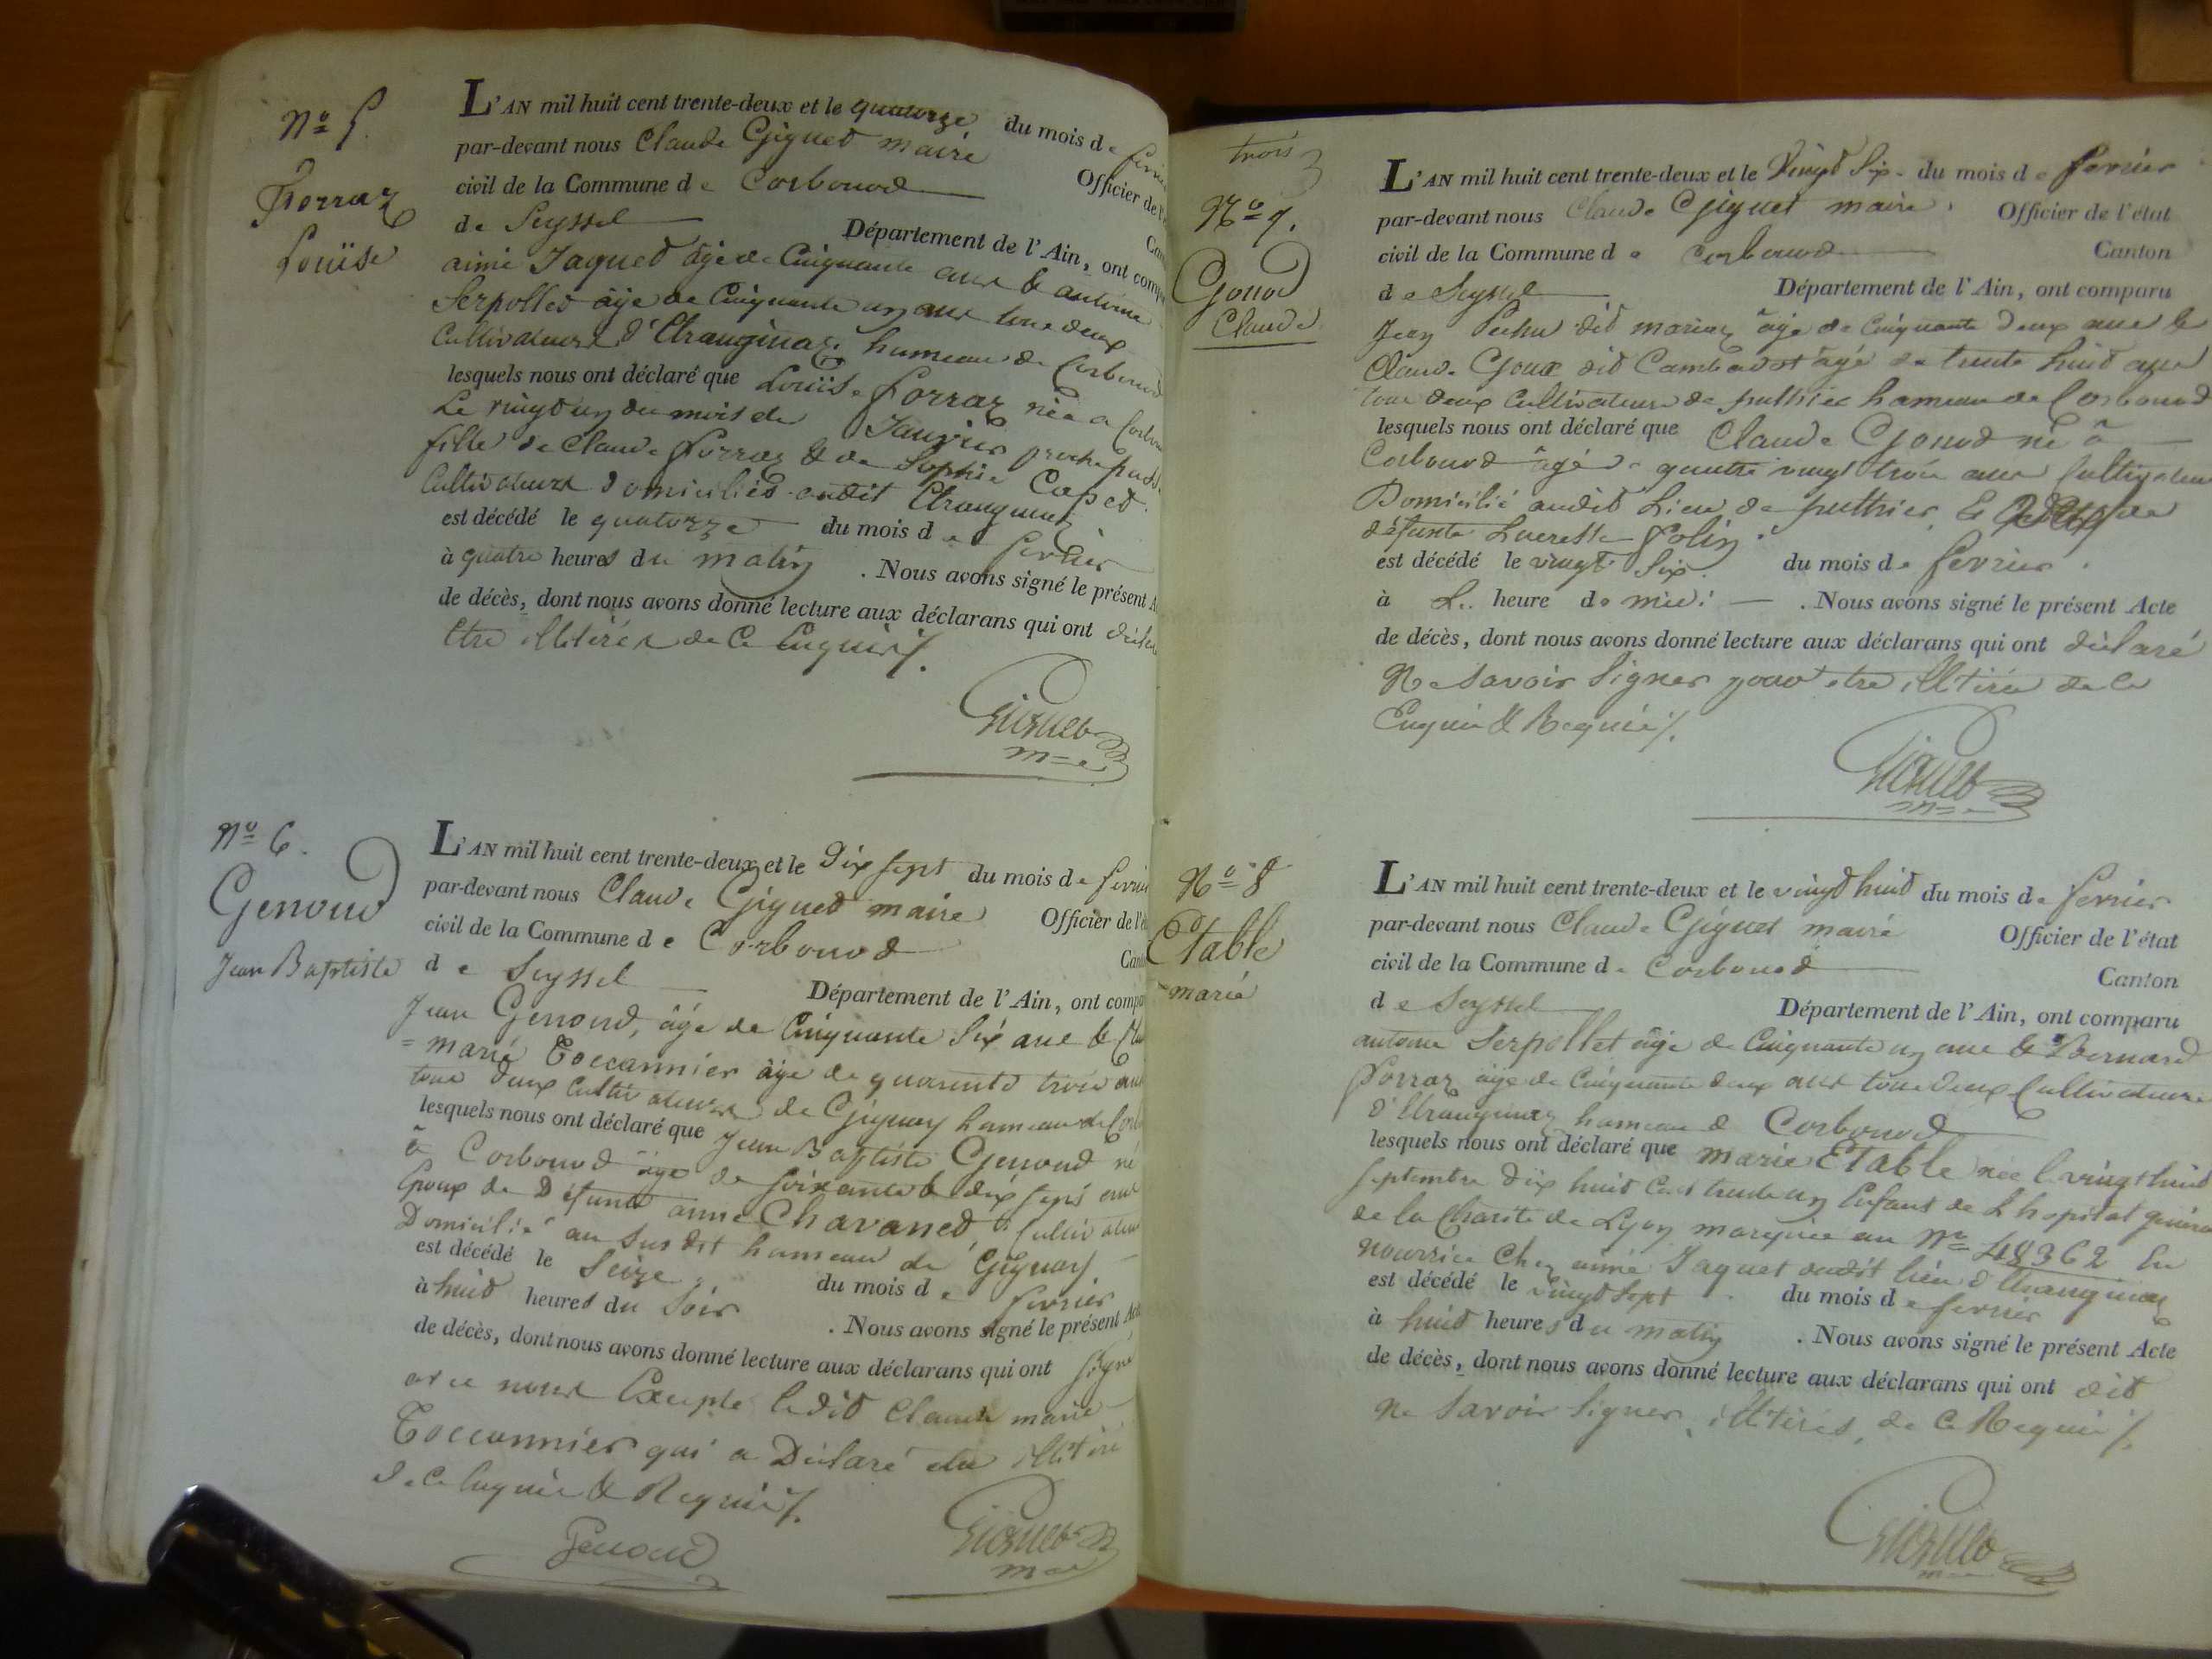 Nº 5.
Forraz
Louïse
L'AN mil huit cent trente-deux et le quatorze du mois de fevrier
par-devant nous Claude Giguet maire Officier de l'é
civil de la Commune de Corbonod Can
de Seyssel Département de l'Ain, ont compa
aimé Jaquet âgé de Cinquante ans & antoine
Serpollet âgé de Cinquante un ans tous deux
Cultivateurs d'Etranginaz hameau de Corbonod
lesquels nous ont déclaré que Louïse forraz née a Corbon
Le vingt un du mois de Janvier proche passé
fille de Claude forraz & de Sophie Capet
Cultivateurs domiciliés audit Etranginaz
est décédé le quatorze du mois de fevrier
à quatre heures du matin . Nous avons signé le présent A
de décès, dont nous avons donné lecture aux déclarans qui ont déclaré
Etre illitérés de Ce Enquis /.
Giguet
m=e
Nº 6.
Genoud
Jean Baptiste
L'AN mil huit cent trente-deux et le Dix sept du mois de fevrier
par-devant nous Claude Giguet maire Officier de l'é
civil de la Commune de Corbonod Cant
de Seyssel Département de l'Ain, ont compa
Jean Genoud, âgé de Cinquante Six ans & Clau
=marie Toccannier âgé de quarante trois ans
tous deux Cultivateurs de Gignay hameau de Corb
lesquels nous ont déclaré que Jean Baptiste Genoud né
à Corbonod âgé de soixante & dix sept ans
Epoux de Défunte anne Chavanet, Cultivateur
Domicilié au susdit hameau de Gignay
est décédé le Seize du mois de fevrier
à huit heures du Soir . Nous avons signé le présent Acte
de décès, dont nous avons donné lecture aux déclarans qui ont signé
avec nous Excepté ledit Claude marie
Toccannier qui a Déclaré etre illitéré
de Ce Enquis & Requis /.
Genoud
Giguet
m=e
trois
Nº 7.
Gonod
Claude
L'AN mil huit cent trente-deux et le Vingt Six du mois de fevrier
par-devant nous Claude Giguet maire Officier de l'état
civil de la Commune de Corbonod Canton
de Seyssel Département de l'Ain, ont comparu
Jean dit mariaz âgé de Cinquante Deux ans &
Claude Goux dit âgé de trente huit ans
tous deux Cultivateurs de puthier hameau de Corbonod
lesquels nous ont déclaré que Claude Gonod né à
Corbonod âgé de quatre vingt trois ans Cultivateur
Domicilié audit Lieu de puthier, de
défunte Lucresse
est décédé le vingt Six du mois de fevrier
à L. heure de midi . Nous avons signé le présent Acte
de décès, dont nous avons donné lecture aux déclarans qui ont déclaré
Ne Savoir Signer pour etre illitérés de Ce
Enquis & Requis /.
Giguet
m=e
Nº 8
Etable
marie
L'AN mil huit cent trente-deux et le vingt huit du mois de fevrier
par-devant nous Claude Giguet maire Officier de l'état
civil de la Commune de Corbonod Canton
de Seyssel Département de l'Ain, ont comparu
antoine Serpollet âgé de Cinquante un ans & Bernard
Forraz âgé de Cinquante deux ans tous deux Cultivateurs
d'Etranginaz hameau de Corbonod
lesquels nous ont déclaré que marie ETable née le vingt huit
septembre Dix huit Cent trente un Enfant de L'hopital général
de la Charité de Lyon marquée au Nº 48362 En
nourrice Chez aimé Jaquet audit lieu d'Etranginaz
est décédé le vingt Sept du mois de fevrier
à huit heures du matin . Nous avons signé le présent Acte
de décès, dont nous avons donné lecture aux déclarans qui ont dit
Ne Savoir Signer, illitérés, de Ce Requis /.
Giguet
m=e